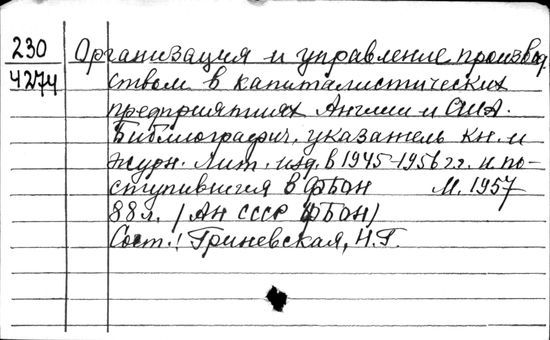 230
4274
Организация и управление производ
ством в капиталистических
предприятиях Англии и США.
Библиографич. указатель кн. и
журн. лит. изд. в 1945-1956 г.г. и по-
ступившей в ФБОН М. 1957
88 л. (АН СССР ФБОН)
Сост.: Гриневская, Н.Г.